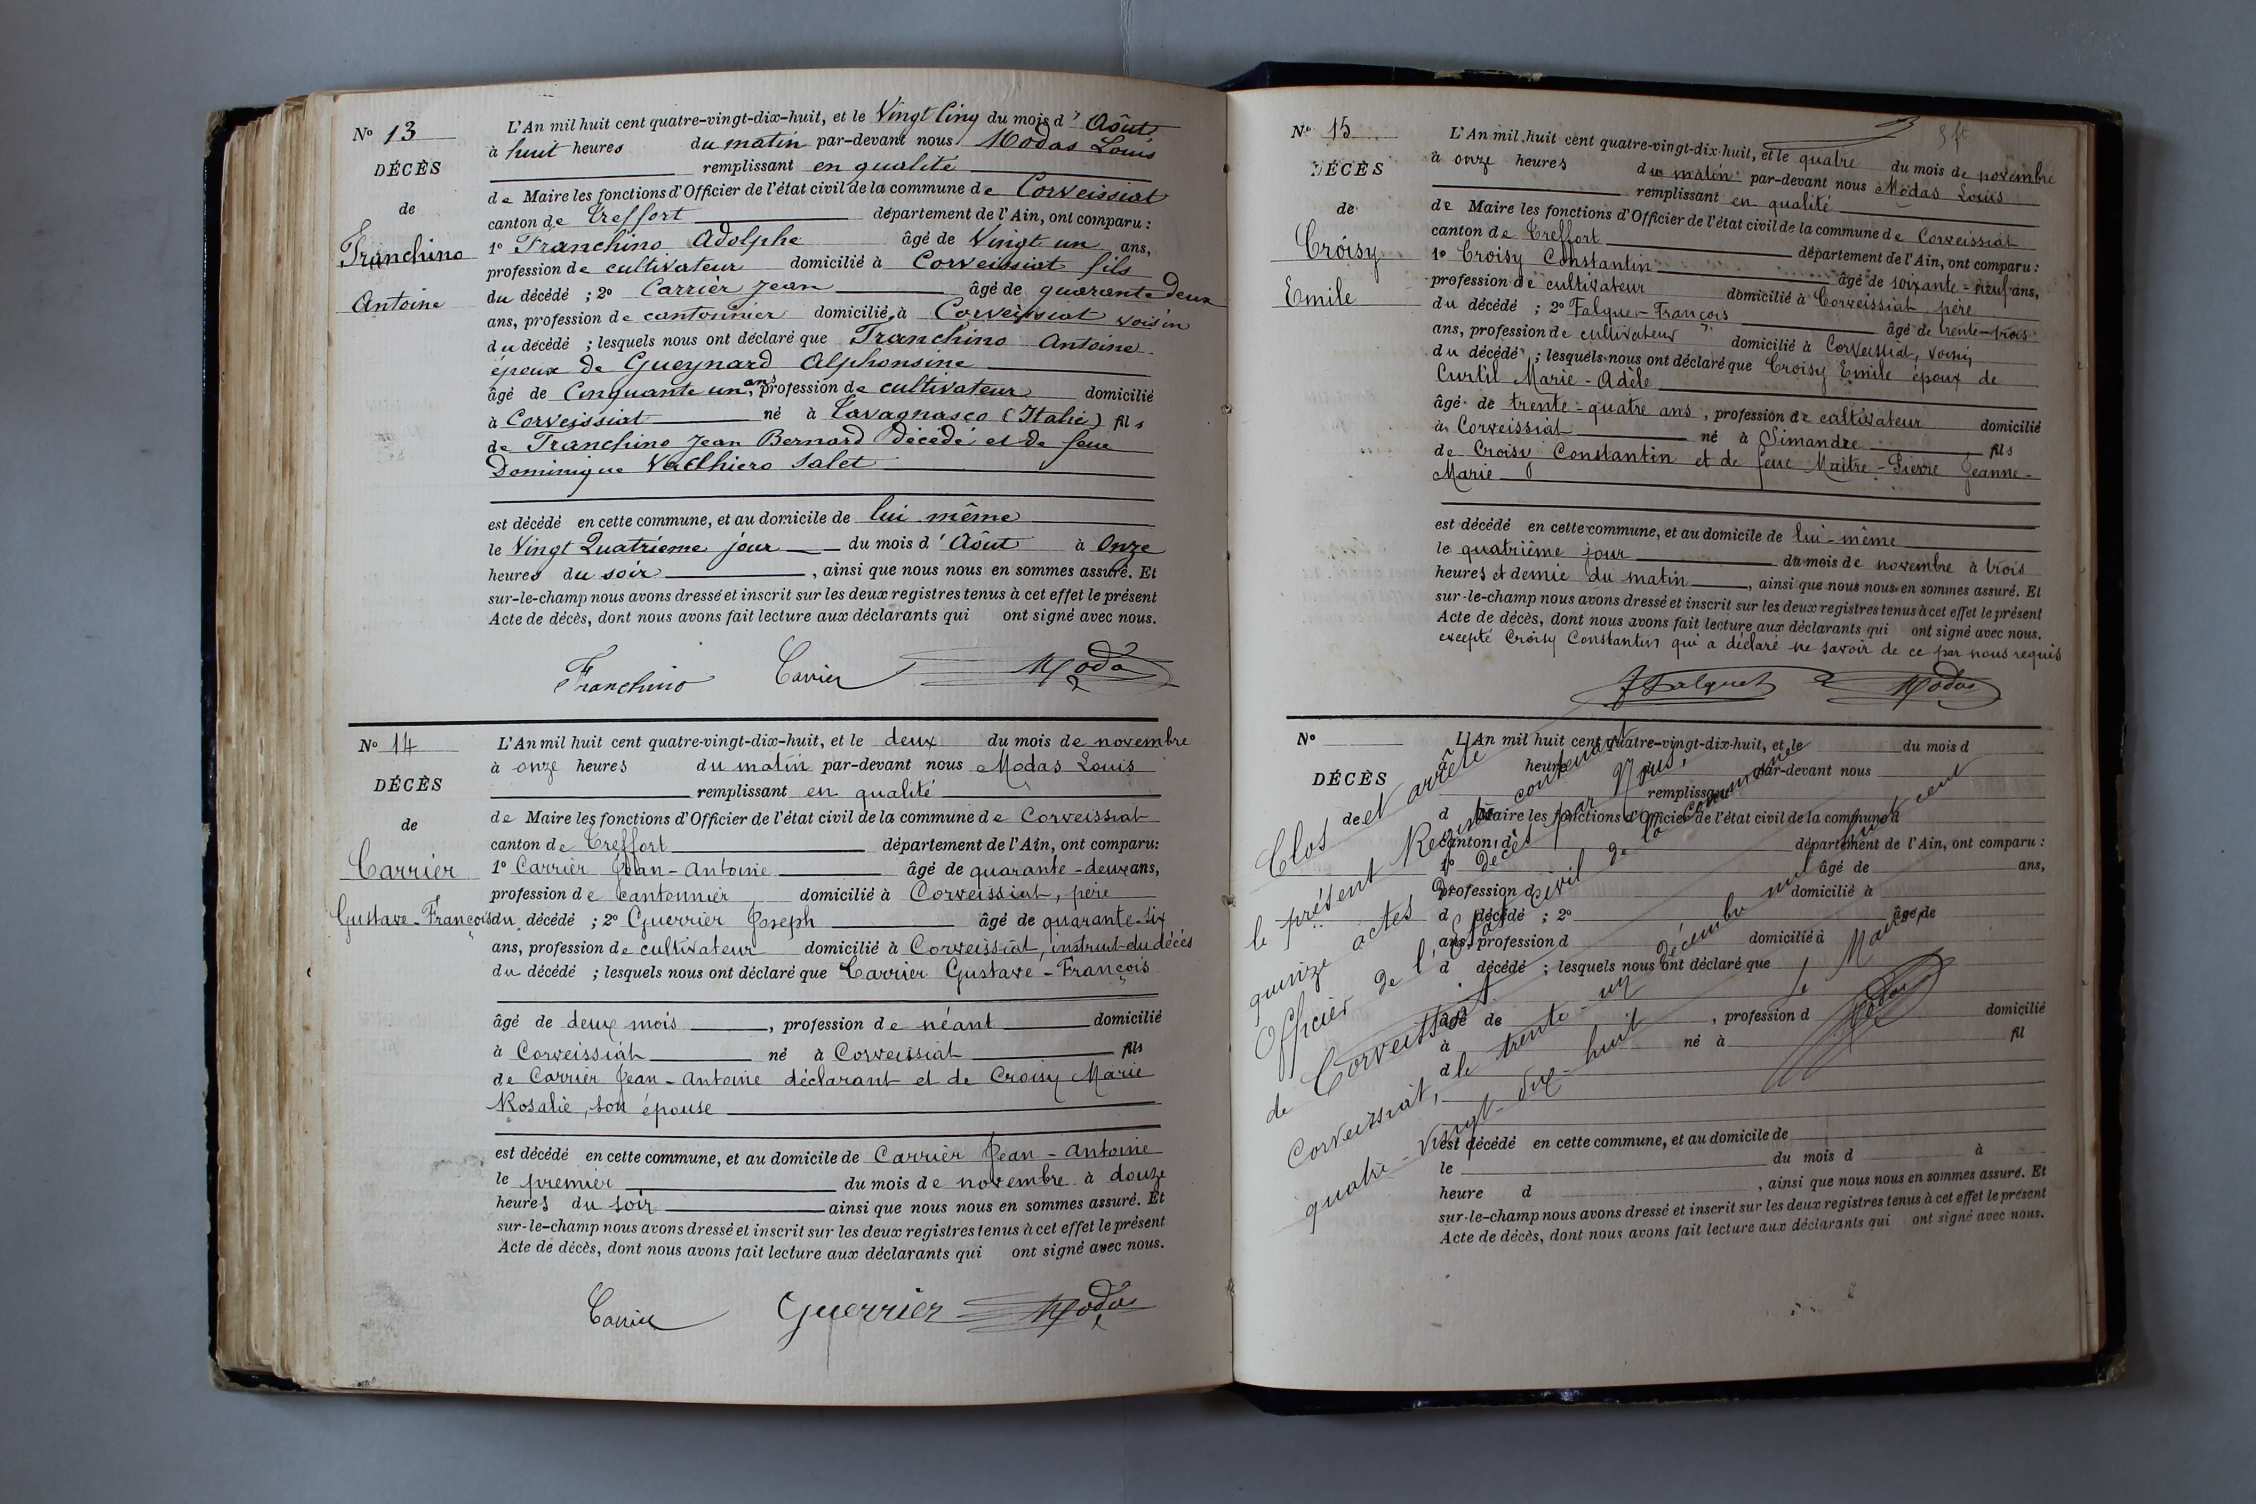 Nº 13
DÉCÈS
de
Franchino
Antoine
L'An mil huit cent quatre-vingt-dix-huit, et le Vingt Cinq du mois d' Août
à huit heures du matin par-devant nous Modas Louis
remplissant en qualité
de Maire les fonctions d'Officier de l'état civil de la commune de Corveissiat
canton de Treffort département de l'Ain, ont comparu :
1º Franchino Adolphe âgé de Vingt un ans,
profession de cultivateur domicilié à Corveissiat fils
du décédé ; 2º Carrier Jean âgé de quarante deux
ans, profession de cantonnier domicilié à Corveissiat voisin
du décédé ; lesquels nous ont déclaré que Franchino Antoine
époux de Gueynard Alphonsine
âgé de Cinquante un ans, profession de cultivateur domicilié
à Corveissiat né à Tavagnasco (Italie) fils
de Franchino Jean Bernard décédé et de feue
Dominique Salet
est décédé en cette commune, et au domicile de lui même
le Vingt Quatrieme jour du mois d' Août à Onze
heures du soir , ainsi que nous nous en sommes assuré. Et
sur-le-champ nous avons dressé et inscrit sur les deux registres tenus à cet effet le présent
Acte de décès, dont nous avons fait lecture aux déclarants qui ont signé avec nous.
Franchino Carrier Modas
Nº 14
DÉCÈS
de
Carrier
Gustave-François
L'An mil huit cent quatre-vingt-dix-huit, et le deux du mois de novembre
à onze heures du matin par-devant nous Modas Louis
remplissant en qualité
de Maire les fonctions d'Officier de l'état civil de la commune de Corveissiat
canton de Treffort département de l'Ain, ont comparu:
1º Carrier Jean-Antoine âgé de quarante-deux ans,
profession de cantonnier domicilié à Corveissiat, père
du décédé ; 2º Guerrier Joseph âgé de quarante-six
ans, profession de cultivateur domicilié à Corveissiat, instruit du décès
du décédé ; lesquels nous ont déclaré que Carrier Gustave-François
âgé de deux mois , profession de néant domicilié
à Corveissiat né à Corveissiat fils
de Carrier Jean-Antoine déclarant et de Croisy Marie
Rosalie, son épouse
est décédé en cette commune, et au domicile de Carrier Jean-Antoine
le premier du mois de novembre à douze
heures du soir ainsi que nous nous en sommes assuré. Et
sur-le-champ nous avons dressé et inscrit sur les deux registres tenus à cet effet le présent
Acte de décès, dont nous avons fait lecture aux déclarants qui ont signé avec nous.
Carrier Guerrier Modas
Nº 15
DÉCÈS
de
Croisy
Emile
L'An mil huit cent quatre-vingt-dix-huit, et le quatre du mois de novembre
à onze heures du matin par-devant nous Modas Louis
remplissant en qualité
de Maire les fonctions d'Officier de l'état civil de la commune de Corveissiat
canton de Treffort département de l'Ain, ont comparu :
1º Croisy Constantin âgé de soixante-neuf ans,
profession de cultivateur domicilié à Corveissiat père
du décédé ; 2º Falquet François âgé de trente-trois
ans, profession de cultivateur domicilié à Corveissiat, voisin
du décédé ; lesquels nous ont déclaré que Croisy Emile époux de
Curtil Marie-Adèle
âgé de trente-quatre ans, profession de cultivateur domicilié
à Corveissiat né à Simandre fils
de Croisy Constantin et de feue Maitre-Pierre Jeanne-
Marie
est décédé en cette commune, et au domicile de lui-même
le quatrième jour du mois de novembre à trois
heures et demie du matin , ainsi que nous nous en sommes assuré. Et
sur-le-champ nous avons dressé et inscrit sur les deux registres tenus à cet effet le présent
Acte de décès, dont nous avons fait lecture aux déclarants qui ont signé avec nous.
excepté Croisy Constantin qui a déclaré ne savoir de ce par nous requis
JFalquet Modas
Nº
DÉCÈS
de
L'An mil huit cent quatre-vingt-dix-huit, et le du mois d
à heure d par-devant nous
remplissant
d Maire les fonctions d'Officier de l'état civil de la commune d
canton d département de l'Ain, ont comparu :
1º âgé de ans,
profession d domicilié à
d décédé ; 2º âgé de
ans, profession d domicilié à
d décédé ; lesquels nous ont déclaré que
âgé de , profession d domicilié
à né à fil
d
est décédé en cette commune, et au domicile de
le du mois d à
heure d , ainsi que nous nous en sommes assuré. Et
sur-le-champ nous avons dressé et inscrit sur les deux registres tenus à cet effet le présent
Acte de décès, dont nous avons fait lecture aux déclarants qui ont signé avec nous.
Clos et arrêté
le présent Registre contenant
quinze actes de décès par Nous,
Officier de l'Etat civil de la Commune
de Corveissiat.
Corveissiat, le trente-un décembre mil huit cent
quatre-vingt-dix-huit
Le Maire,
Modas